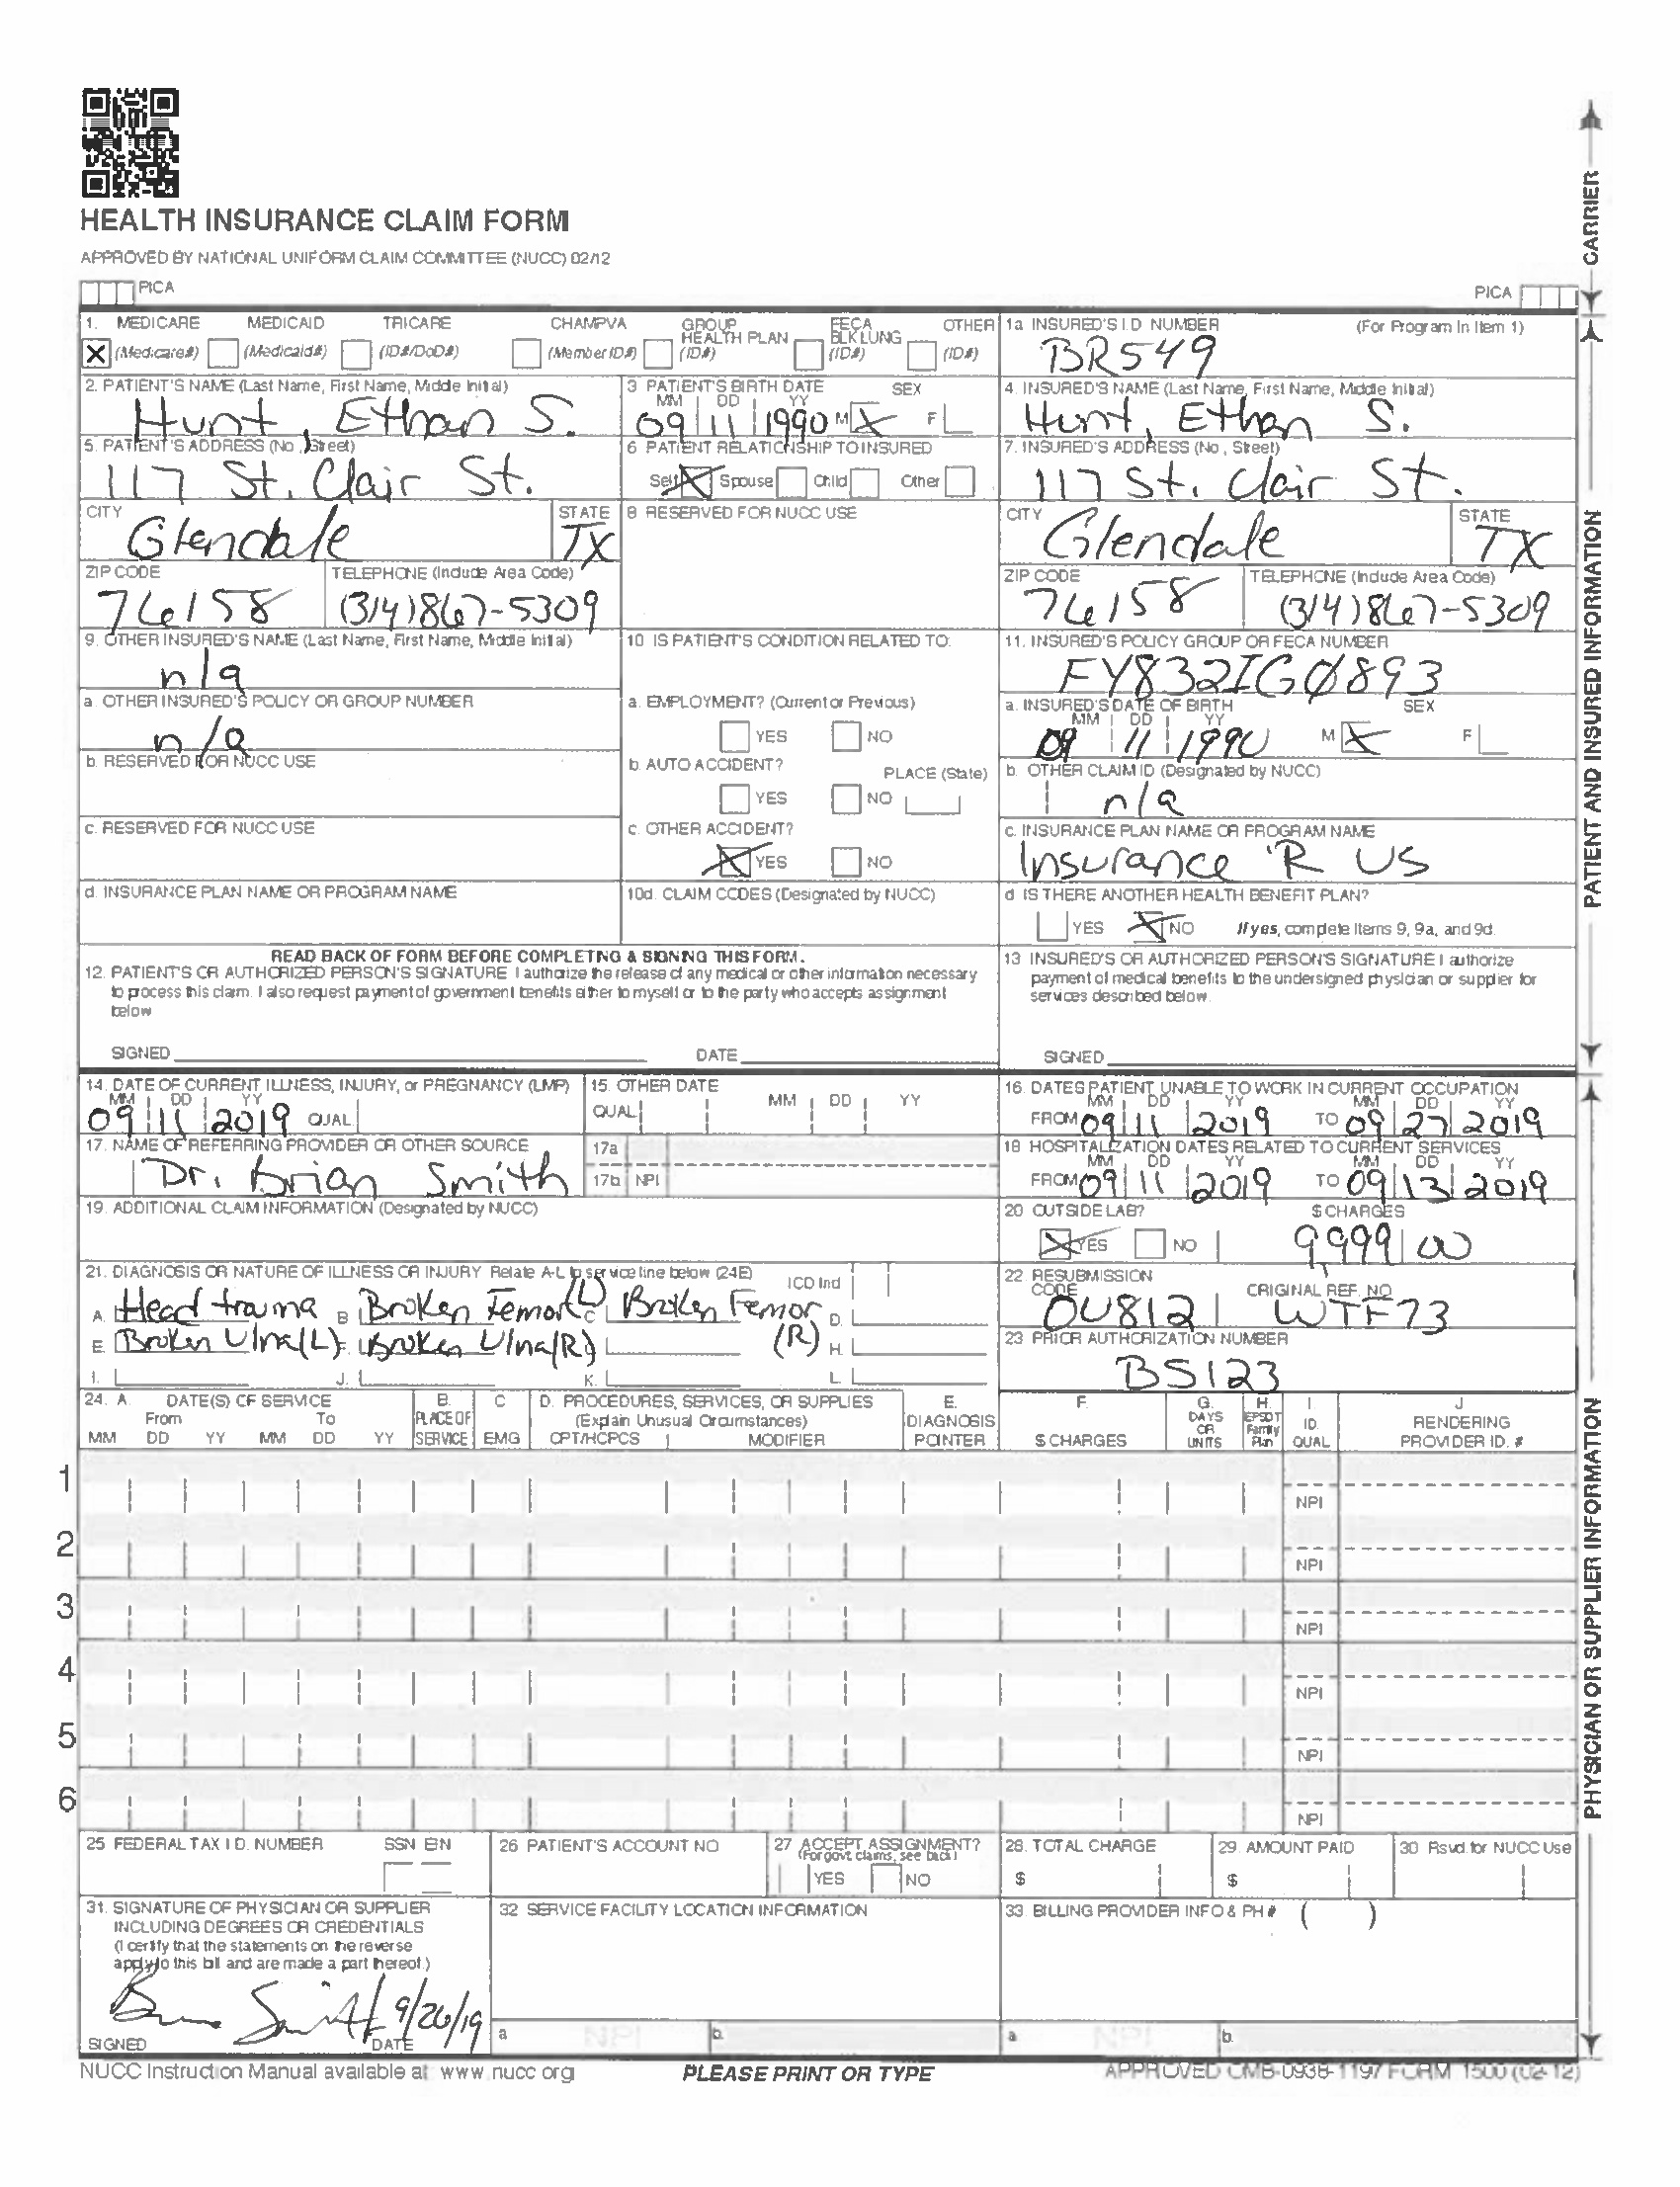 HEALTH INSURANCE CLAIM FORM
APPROVED BY NATIONAL UNIFORM CLAIM COMMITTEE (NUCC) 02/12
PICA PICA
CARRIER
1. MEDICARE MEDICAID TRICARE CHAMPVA GROUP HEALTH PLAN FECA BLK LUNG OTHER
(Medicare#) (Medicaid#) (ID#/DoD#) (Member ID#) (ID#) (ID#) (ID#)
1a INSURED'S I.D NUMBER (For Program In Item 1)
BR549
2. PATIENT'S NAME (Last Name, First Name, Middle Initial)
Hunt, Ethan S.
3 PATIENT'S BIRTH DATE SEX
MM DD YY
09 11 1990 M X F
4. INSURED'S NAME (Last Name, First Name, Middle Initial)
Hunt, Ethan S.
5. PATIENT'S ADDRESS (No , Street)
117 St. Clair St.
6 PATIENT RELATIONSHIP TO INSURED
Self Spouse Child Other
7. INSURED'S ADDRESS (No , Street)
117 St. Clair St.
CITY STATE
Glendale TX
8 RESERVED FOR NUCC USE
CITY STATE
Glendale TX
ZIP CODE TELEPHONE (Include Area Code)
76158 (314)867-5309
ZIP CODE TELEPHONE (Include Area Code)
76158 (314)867-5309
9. OTHER INSURED'S NAME (Last Name, First Name, Middle Initial)
n/a
10 IS PATIENT'S CONDITION RELATED TO:
11. INSURED'S POLICY GROUP OR FECA NUMBER
FY832IGØ893
a. OTHER INSURED'S POLICY OR GROUP NUMBER
n/a
a. EMPLOYMENT? (Current or Previous)
YES NO
a. INSURED'S DATE OF BIRTH SEX
MM DD YY
09 11 1990 M X F
b. RESERVED FOR NUCC USE
b. AUTO ACCIDENT? PLACE (State)
YES NO
b. OTHER CLAIM ID (Designated by NUCC)
n/a
c. RESERVED FOR NUCC USE
c. OTHER ACCIDENT?
YES NO
c. INSURANCE PLAN NAME OR PROGRAM NAME
Insurance 'R US
d. INSURANCE PLAN NAME OR PROGRAM NAME
10d. CLAIM CODES (Designated by NUCC)
d IS THERE ANOTHER HEALTH BENEFIT PLAN?
YES NO If yes, complete items 9, 9a, and 9d.
READ BACK OF FORM BEFORE COMPLETING & SIGNING THIS FORM.
12. PATIENT'S OR AUTHORIZED PERSON'S SIGNATURE I authorize the release of any medical or other information necessary
to process this claim. I also request payment of government benefits either to myself or to the party who accepts assignment
below
SIGNED DATE
13 INSURED'S OR AUTHORIZED PERSON'S SIGNATURE I authorize
payment of medical benefits to the undersigned physician or supplier for
services described below.
SIGNED
PATIENT AND INSURED INFORMATION
14. DATE OF CURRENT ILLNESS, INJURY, or PREGNANCY (LMP)
MM DD YY
09 11 2019 QUAL
15. OTHER DATE
QUAL MM DD YY
16. DATES PATIENT UNABLE TO WORK IN CURRENT OCCUPATION
MM DD YY MM DD YY
FROM 09 11 2019 TO 09 27 2019
17. NAME OF REFERRING PROVIDER OR OTHER SOURCE
Dr. Brian Smith
17a
17b NPI
18 HOSPITALIZATION DATES RELATED TO CURRENT SERVICES
MM DD YY MM DD YY
FROM 09 11 2019 TO 09 13 2019
19. ADDITIONAL CLAIM INFORMATION (Designated by NUCC)
20 OUTSIDE LAB? $ CHARGES
YES NO 9999 00
21. DIAGNOSIS OR NATURE OF ILLNESS OR INJURY Relate A-L to service line below (24E) ICD Ind
A. Head trauma B Broken Femor (L) C Broken Femor (R) D.
E. Broken Ulna(L) F. Broken Ulna(R) H.
I. J. K. L.
22 RESUBMISSION CODE ORIGINAL REF. NO
OU812 WTF73
23 PRIOR AUTHORIZATION NUMBER
BS123
24. A DATE(S) OF SERVICE B. C D. PROCEDURES, SERVICES, OR SUPPLIES E. F. G. H. I. J
From To PLACE OF (Explain Unusual Circumstances) DIAGNOSIS DAYS OR EPSDT Family ID. RENDERING
MM DD YY MM DD YY SERVICE EMG CPT/HCPCS MODIFIER POINTER $ CHARGES UNITS Plan QUAL PROVIDER ID. #
1 NPI
2 NPI
3 NPI
4 NPI
5 NPI
6 NPI
PHYSICIAN OR SUPPLIER INFORMATION
25 FEDERAL TAX I D. NUMBER SSN EIN
26 PATIENT'S ACCOUNT NO
27 ACCEPT ASSIGNMENT?
(For govt claims, see back)
YES NO
28. TOTAL CHARGE
$
29. AMOUNT PAID
$
30 Rsvd for NUCC Use
31. SIGNATURE OF PHYSICIAN OR SUPPLIER
INCLUDING DEGREES OR CREDENTIALS
(I certify that the statements on the reverse
apply to this bill and are made a part thereof.)
Smith 9/26/19
SIGNED DATE
32 SERVICE FACILITY LOCATION INFORMATION
a NPI b.
33. BILLING PROVIDER INFO & PH # ( )
a NPI b.
NUCC Instruction Manual available at: www.nucc.org
PLEASE PRINT OR TYPE
APPROVED OMB-0938-1197 FORM 1500 (02-12)